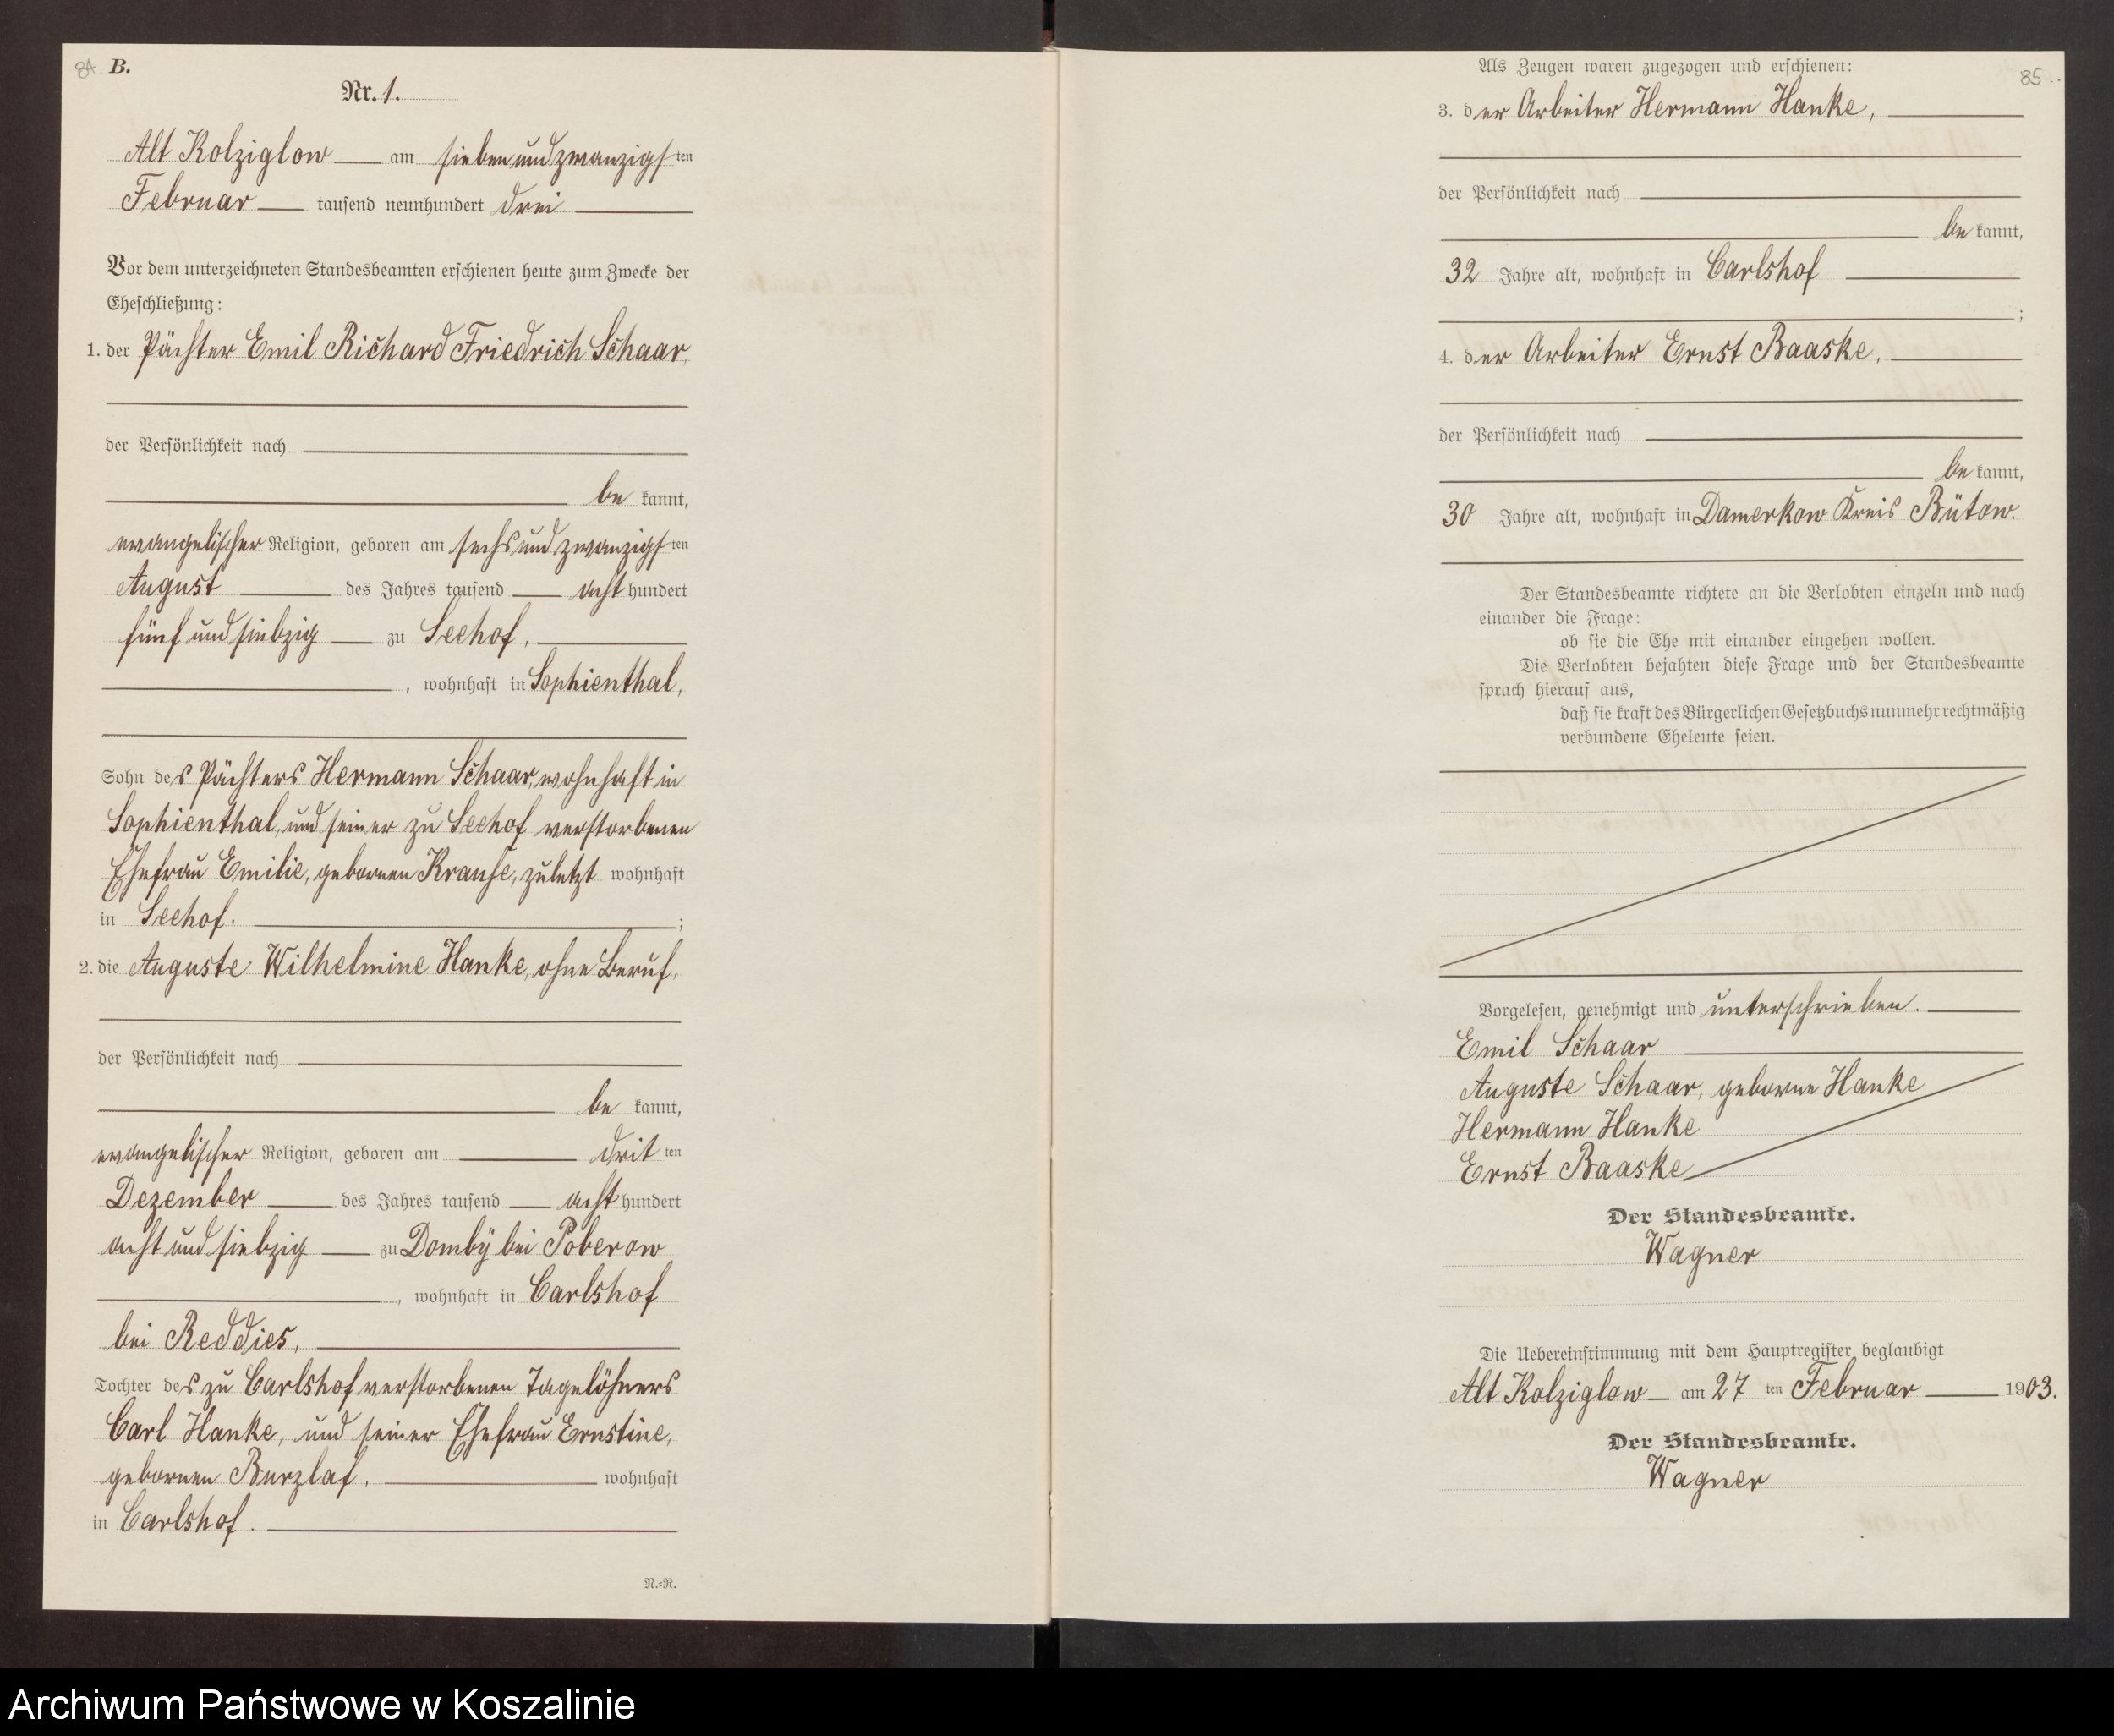 84. B.
Nr. 1.
Alt Kolziglow am siebenundzwanzigsten
Februar tausend neunhundert drei
Vor dem unterzeichneten Standesbeamten erschienen heute zum Zwecke der
Eheschließung:
1. der Pächter Emil Richard Friedrich Schaar,
der Persönlichkeit nach
be kannt,
evangelischer Religion, geboren am sechsundzwanzigsten
August des Jahres tausend acht hundert
fünf und siebzig zu Seehof,
, wohnhaft in Sophienthal,
Sohn des Pächters Hermann Schaar, wohnhaft in
Sophienthal, und seiner zu Seehof verstorbenen
Ehefrau Emilie, gebornen Krause, zuletzt wohnhaft
in Seehof. ;
2. die Auguste Wilhelmine Hanke, ohne Beruf,
der Persönlichkeit nach
be kannt,
evangelischer Religion, geboren am dritten
Dezember des Jahres tausend acht hundert
acht und siebzig zu Domby bei Poberow
, wohnhaft in Carlshof
bei Reddies,
Tochter des zu Carlshof verstorbenen Tagelöhners
Carl Hanke, und seiner Ehefrau Ernstine,
gebornen Burzlaf, wohnhaft
in Carlshof.
N.=N.
85.
Als Zeugen waren zugezogen und erschienen:
3. der Arbeiter Hermann Hanke,
der Persönlichkeit nach
be kannt,
32 Jahre alt, wohnhaft in Carlshof
;
4. der Arbeiter Ernst Baaske,
der Persönlichkeit nach
be kannt,
30 Jahre alt, wohnhaft in Damerkow Kreis Bütow.
Der Standesbeamte richtete an die Verlobten einzeln und nach
einander die Frage:
ob sie die Ehe mit einander eingehen wollen.
Die Verlobten bejahten diese Frage und der Standesbeamte
sprach hierauf aus,
daß sie kraft des Bürgerlichen Gesetzbuchs nunmehr rechtmäßig
verbundene Eheleute seien.
Vorgelesen, genehmigt und unterschrieben.
Emil Schaar
Auguste Schaar, geborne Hanke
Hermann Hanke
Ernst Baaske
Der Standesbeamte.
Wagner
Die Uebereinstimmung mit dem Hauptregister beglaubigt
Alt Kolziglow am 27 ten Februar 1903.
Der Standesbeamte.
Wagner
Archiwum Państwowe w Koszalinie